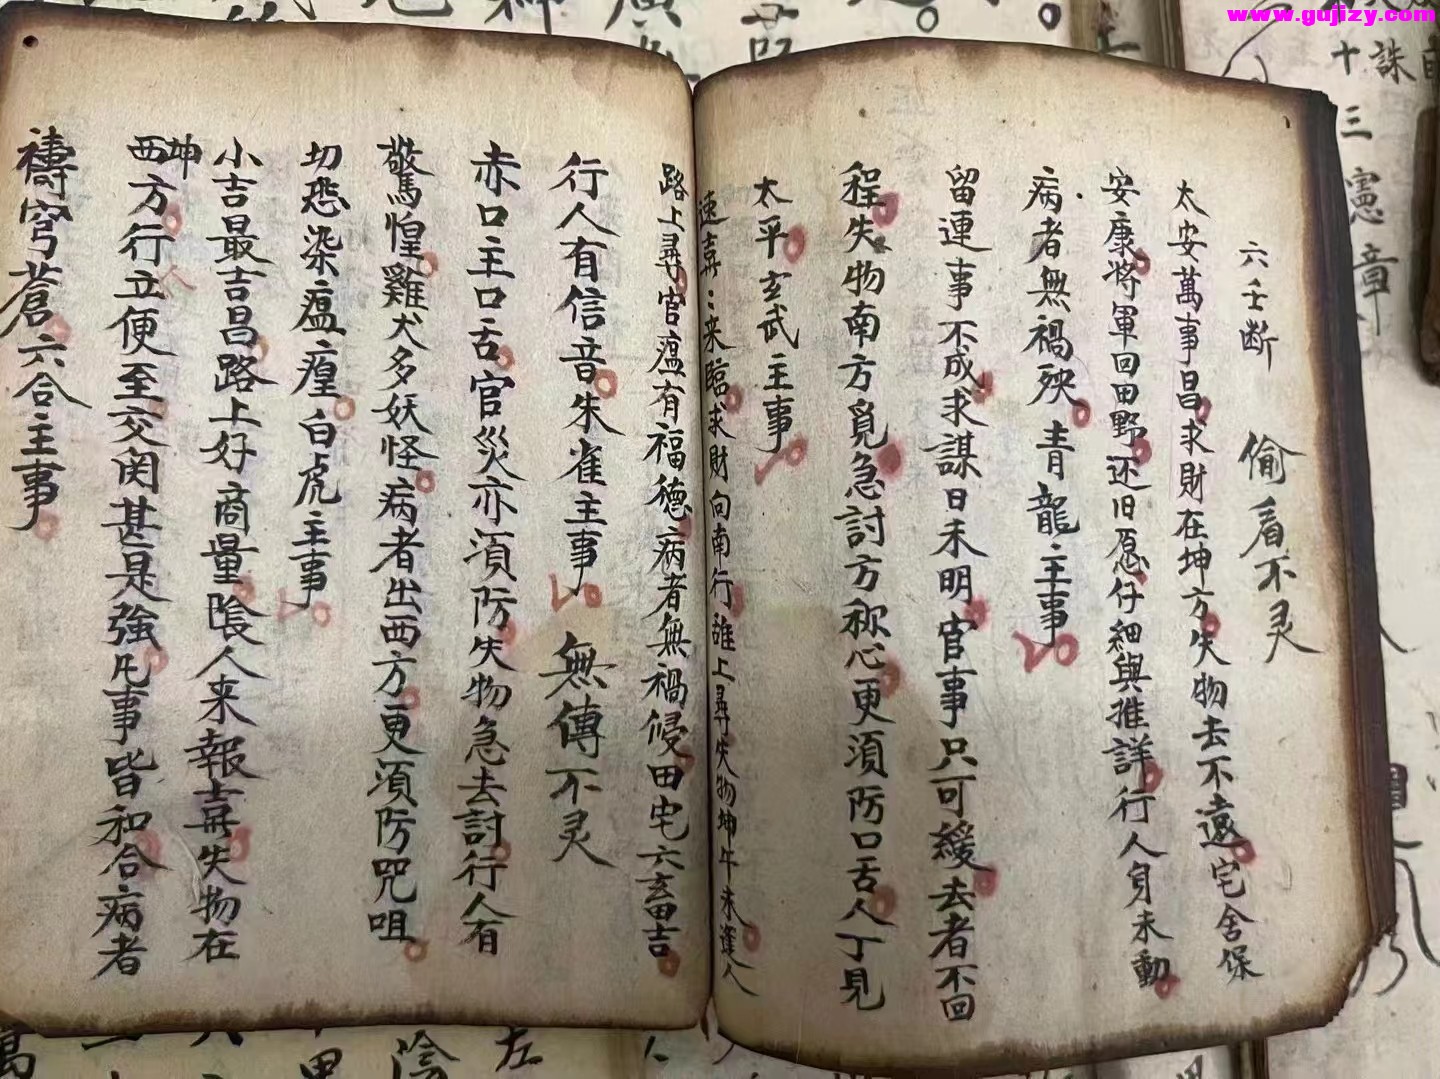 www.gujizy.com
六壬断 偷看不灵
太安萬事昌求財在坤方失物去不遠宅舍保
安康将軍回田野还旧愿仔細與推詳行人身未動
病者無禍殃青龍主事
留連事不成求謀日未明官事只可緩去者不回
程失物南方覓急討方称心更須防口舌人丁見
太平玄武主事
速喜:来臨求財向南行 上尋失物坤午未逢人
路上尋官瘟有福德病者無禍侵田宅六畜吉
行人有信音朱雀主事 無傳不灵
赤口主口舌官災亦須防失物急去討行人有
驚惶雞犬多妖怪病者出西方更須防咒咀
切恐染瘟瘴白虎主事
小吉最吉昌路上好商量陰人来報喜失物在
坤
西方行立便至交関甚是強凡事皆和合病者
禱穹蒼六合主事
十三憲章
誅
左
陰